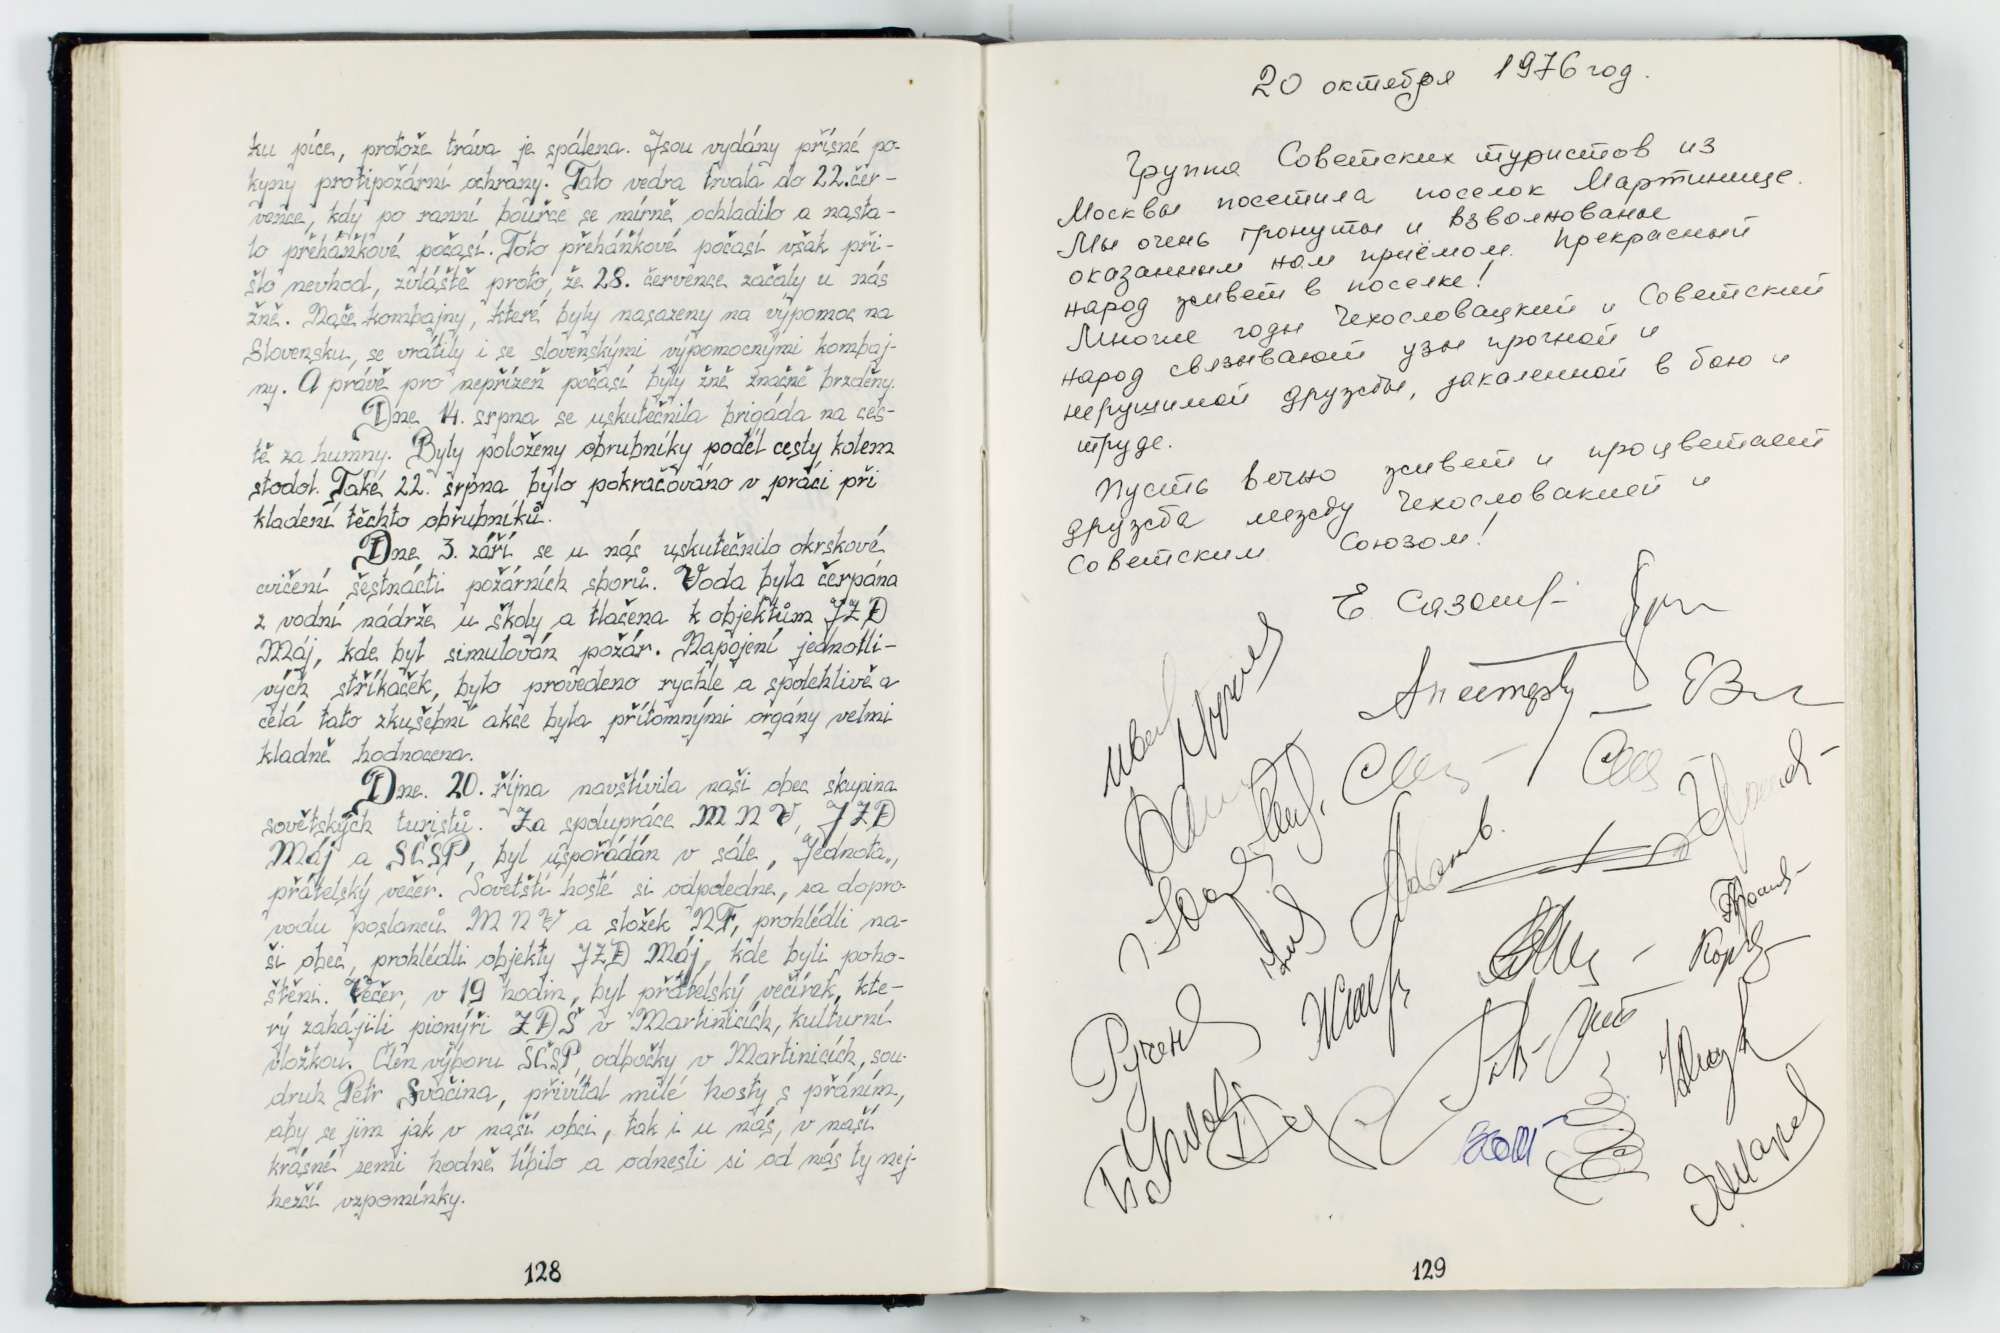 ku píce, protože tráva je spálena. Jsou vydány přísné po-
kyny protipožární ochrany. Tato vedra trvala do 22.čer-
vence, kdy po ranní bouřce se mírně ochladilo a nasta-
lo přeháňkové počasí. Toto přeháňkové počasí však při-
šlo nevhod, zvláště proto, že 28. července začaly u nás
žně. Naše kombajny, které byly nasazeny na výpomoc na
Slovensku, se vrátily i se slovenskými výpomocnými kombaj-
ny. A právě pro nepřízeň počasí byly žně značně brzděny.
Dne 14. srpna se uskutečnila brigáda na ces-
tě za humny. Byly položeny obrubníky podél cesty kolem
stodol. Také 22. srpna bylo pokračováno v práci při
kladení těchto obrubníků.
Dne 3. září se u nás uskutečnilo okrskové
cvičení šestnácti požárních sborů. Voda byla čerpána
z vodní nádrže u školy a tlačena k objektům JZD
Máj, kde byl simulován požár. Napojení jednotli-
vých stříkaček, bylo provedeno rychle a spolehlivě a
celá tato zkušební akce byla přítomnými orgány velmi
kladně hodnocena.
Dne 20. října navštívila naši obec skupina
sovětských turistů. Za spolupráce MNV, JZD
Máj a SČSP, byl uspořádán v sále „Jednota„
přátelský večer. Sovětští hosté si odpoledne, za dopro-
vodu poslanců MNV a složek NF, prohlédli na-
ši obec, prohlédli objekty JZD Máj, kde byli poho-
štěni. Večer, v 19 hodin, byl přátelský večírek, kte-
rý zahájili pionýři ZDŠ v Martinicích, kulturní
vložkou. Člen výboru SČSP, odbočky v Martinicích, sou-
druh Petr Svačina, přivítal milé hosty s přáním,
aby se jim jak v naší obci, tak i u nás, v naší
krásné zemi hodně líbilo a odnesli si od nás ty nej-
hezčí vzpomínky.
128
20 октября 1976 год.
Группа Советских туристов из
Москвы посетила поселок Мартинице.
Мы очень тронуты и взволнованы
оказанным нам приёмом. Прекрасный
народ живет в поселке!
Многие годы Чехословацкий и Советский
народ связывают узы прочной и
нерушимой дружбы, закаленной в бою и
труде.
Пусть вечно живет и процветает
дружба между Чехословакией и
Советским Союзом!
129